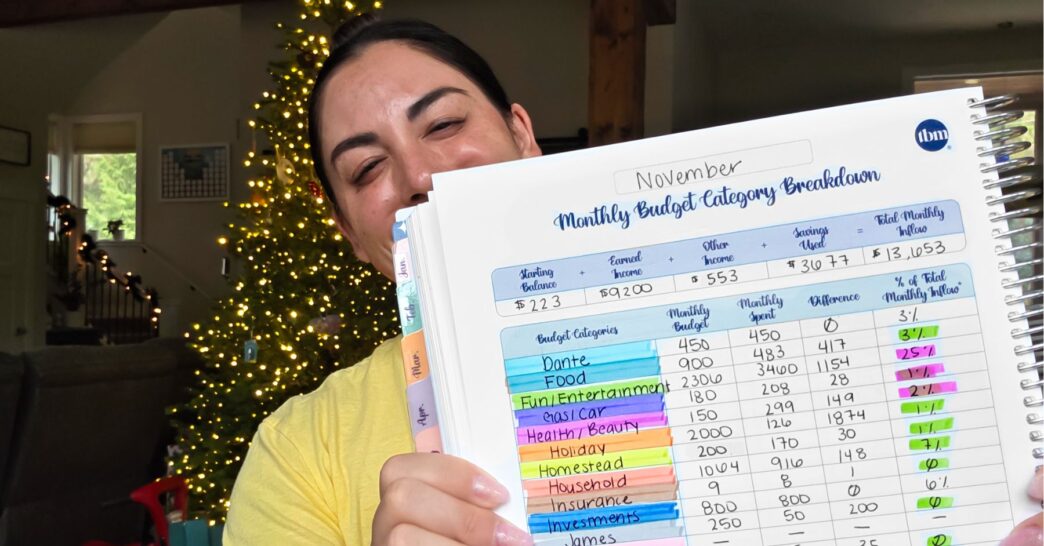 tbm
November
Monthly Budget Category Breakdown
Starting Balance + Earned Income + Other Income + Savings Used = Total Monthly Inflow
$223 $9200 $553 $3677 $13,653
Budget Categories Monthly Budget Monthly Spent Difference % of Total Monthly Inflow*
Dante 450 450 Ø 3%
Food 900 483 417 3%
Fun/Entertainment 2306 3460 1154 25%
Gas/Car 180 208 28 1%
Health/Beauty 150 299 149 2%
Holiday 2000 126 1874 1%
Homestead 200 170 30 1%
Household 1064 916 148 7%
Insurance 9 8 1 Ø
Investments 800 800 Ø 6%
James 250 50 200 Ø
— — — —
35 Ø
Jan.
Feb.
Mar.
Apr.